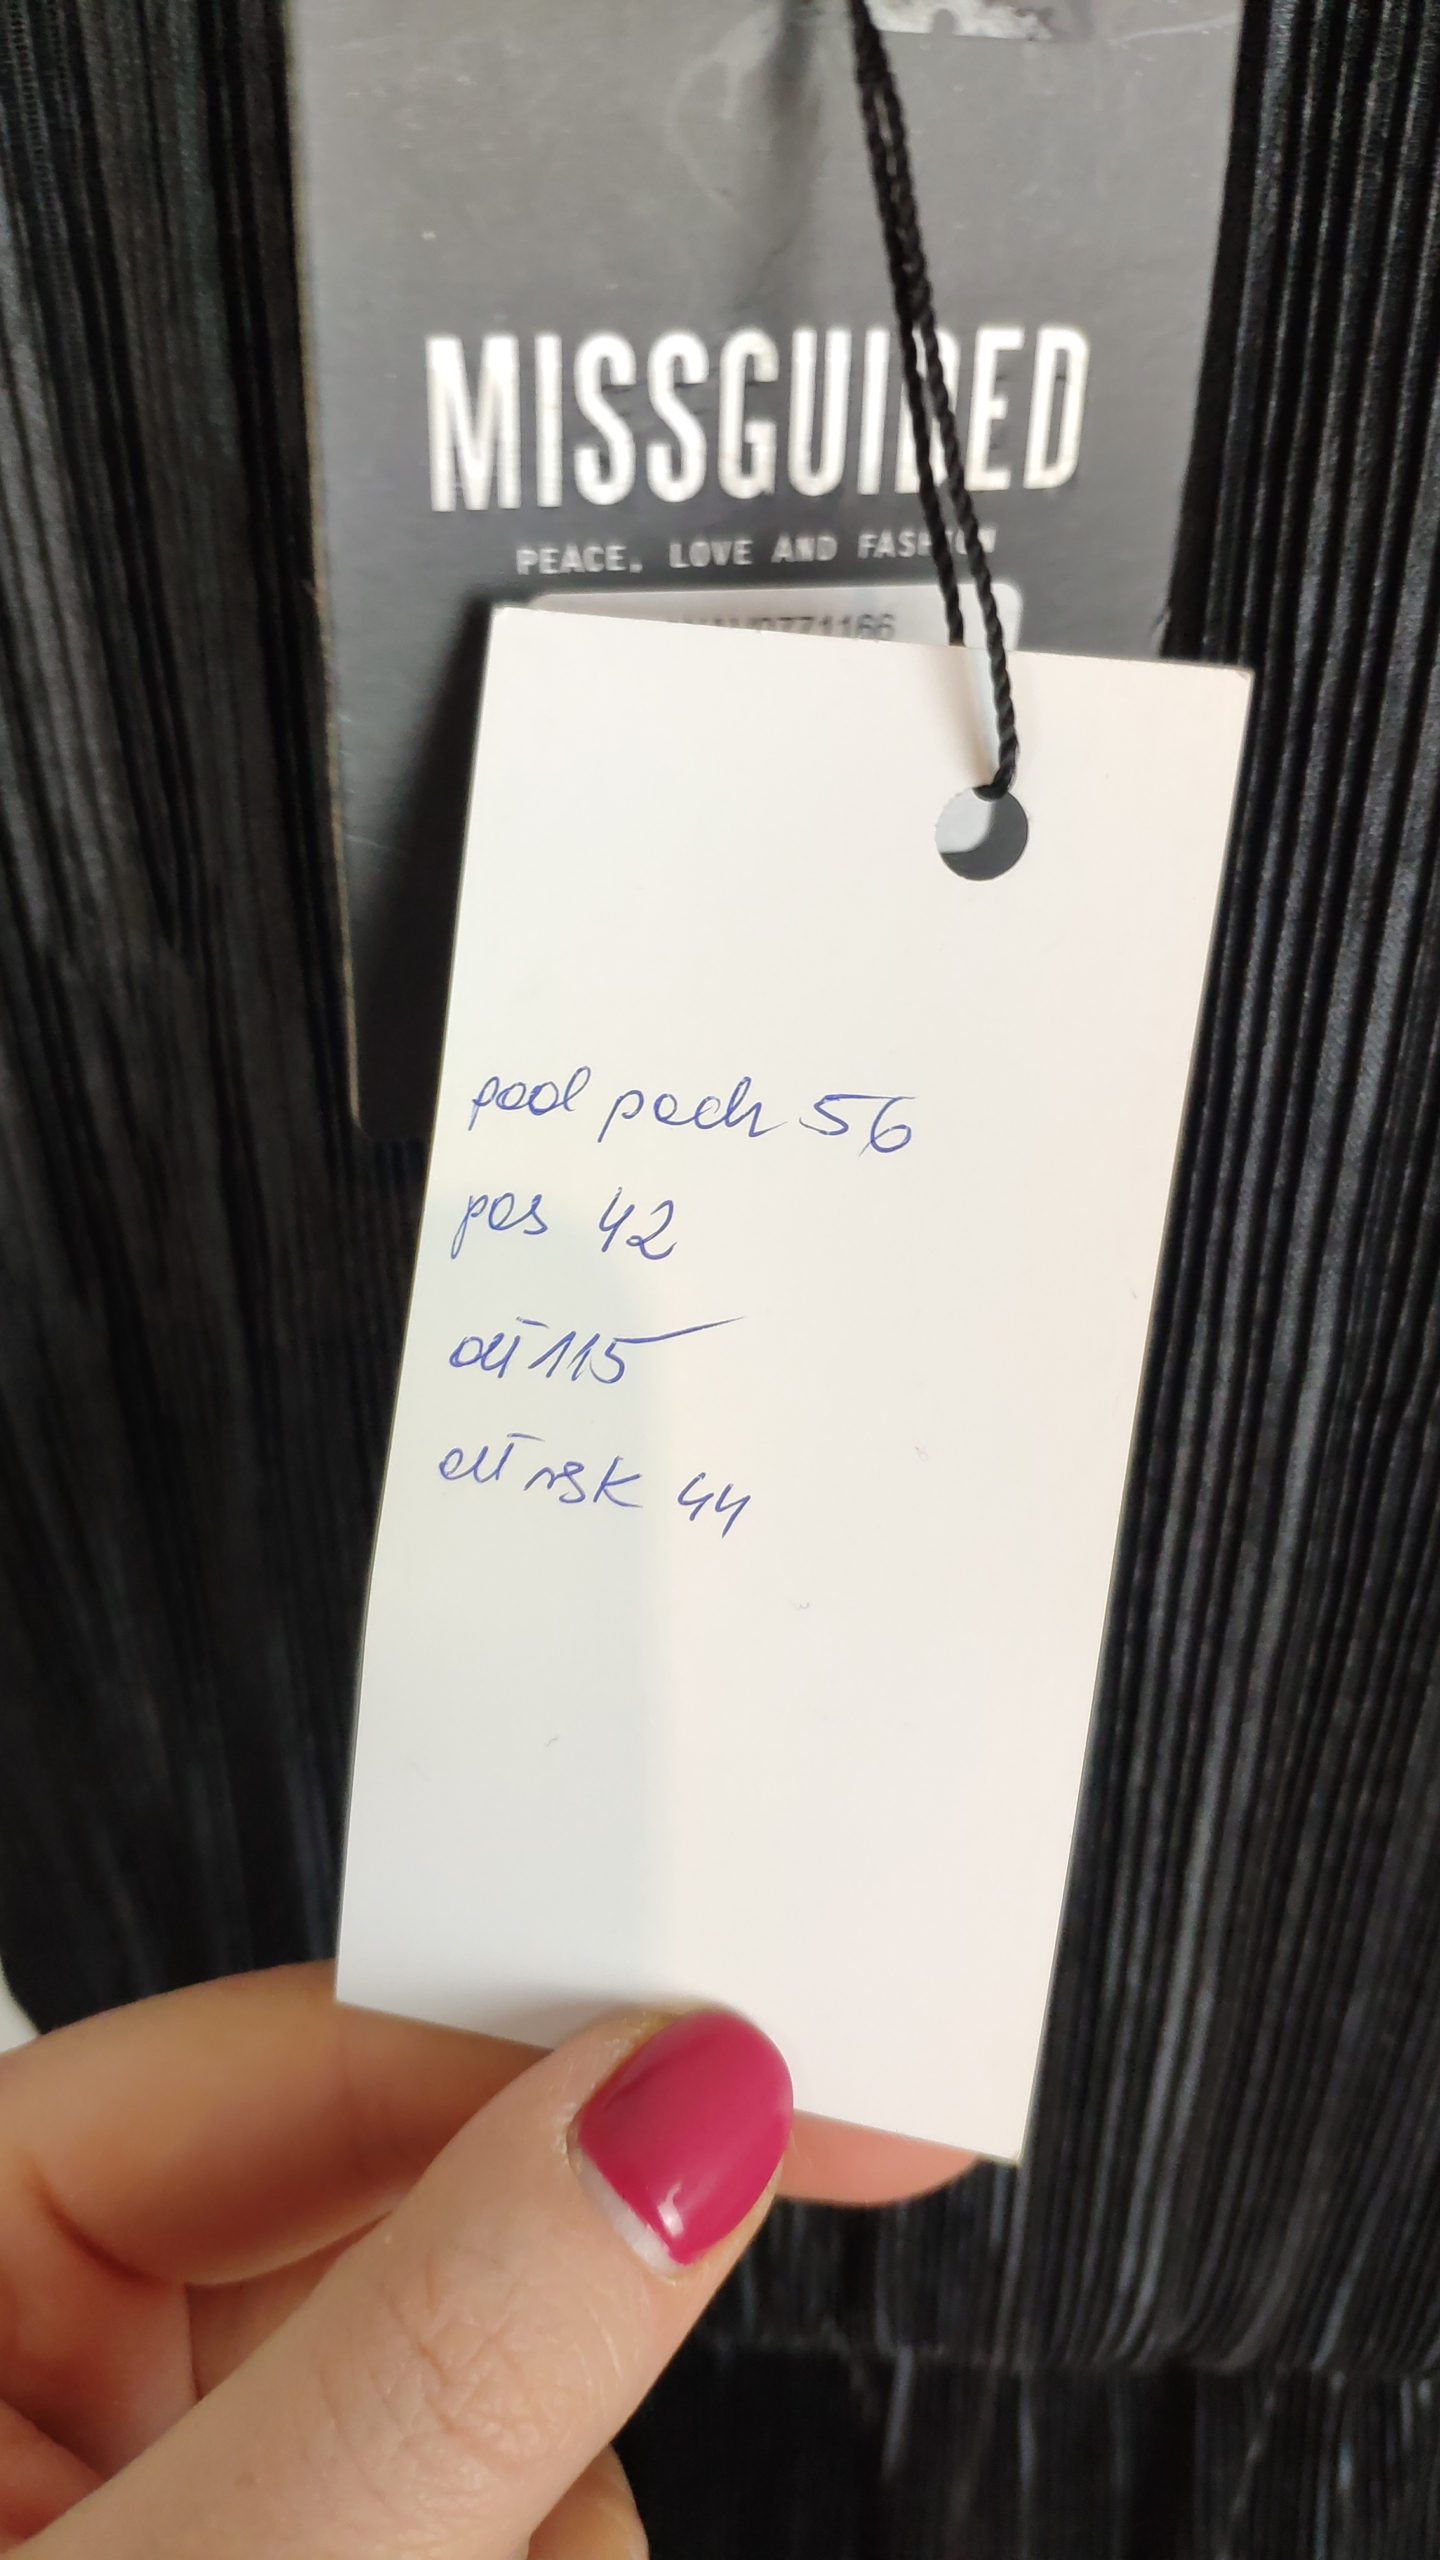 MISSGUIDED
PEACE, LOVE AND FASHION
771166
pod pach 56
pas 42
dł 115
dł rsk 44